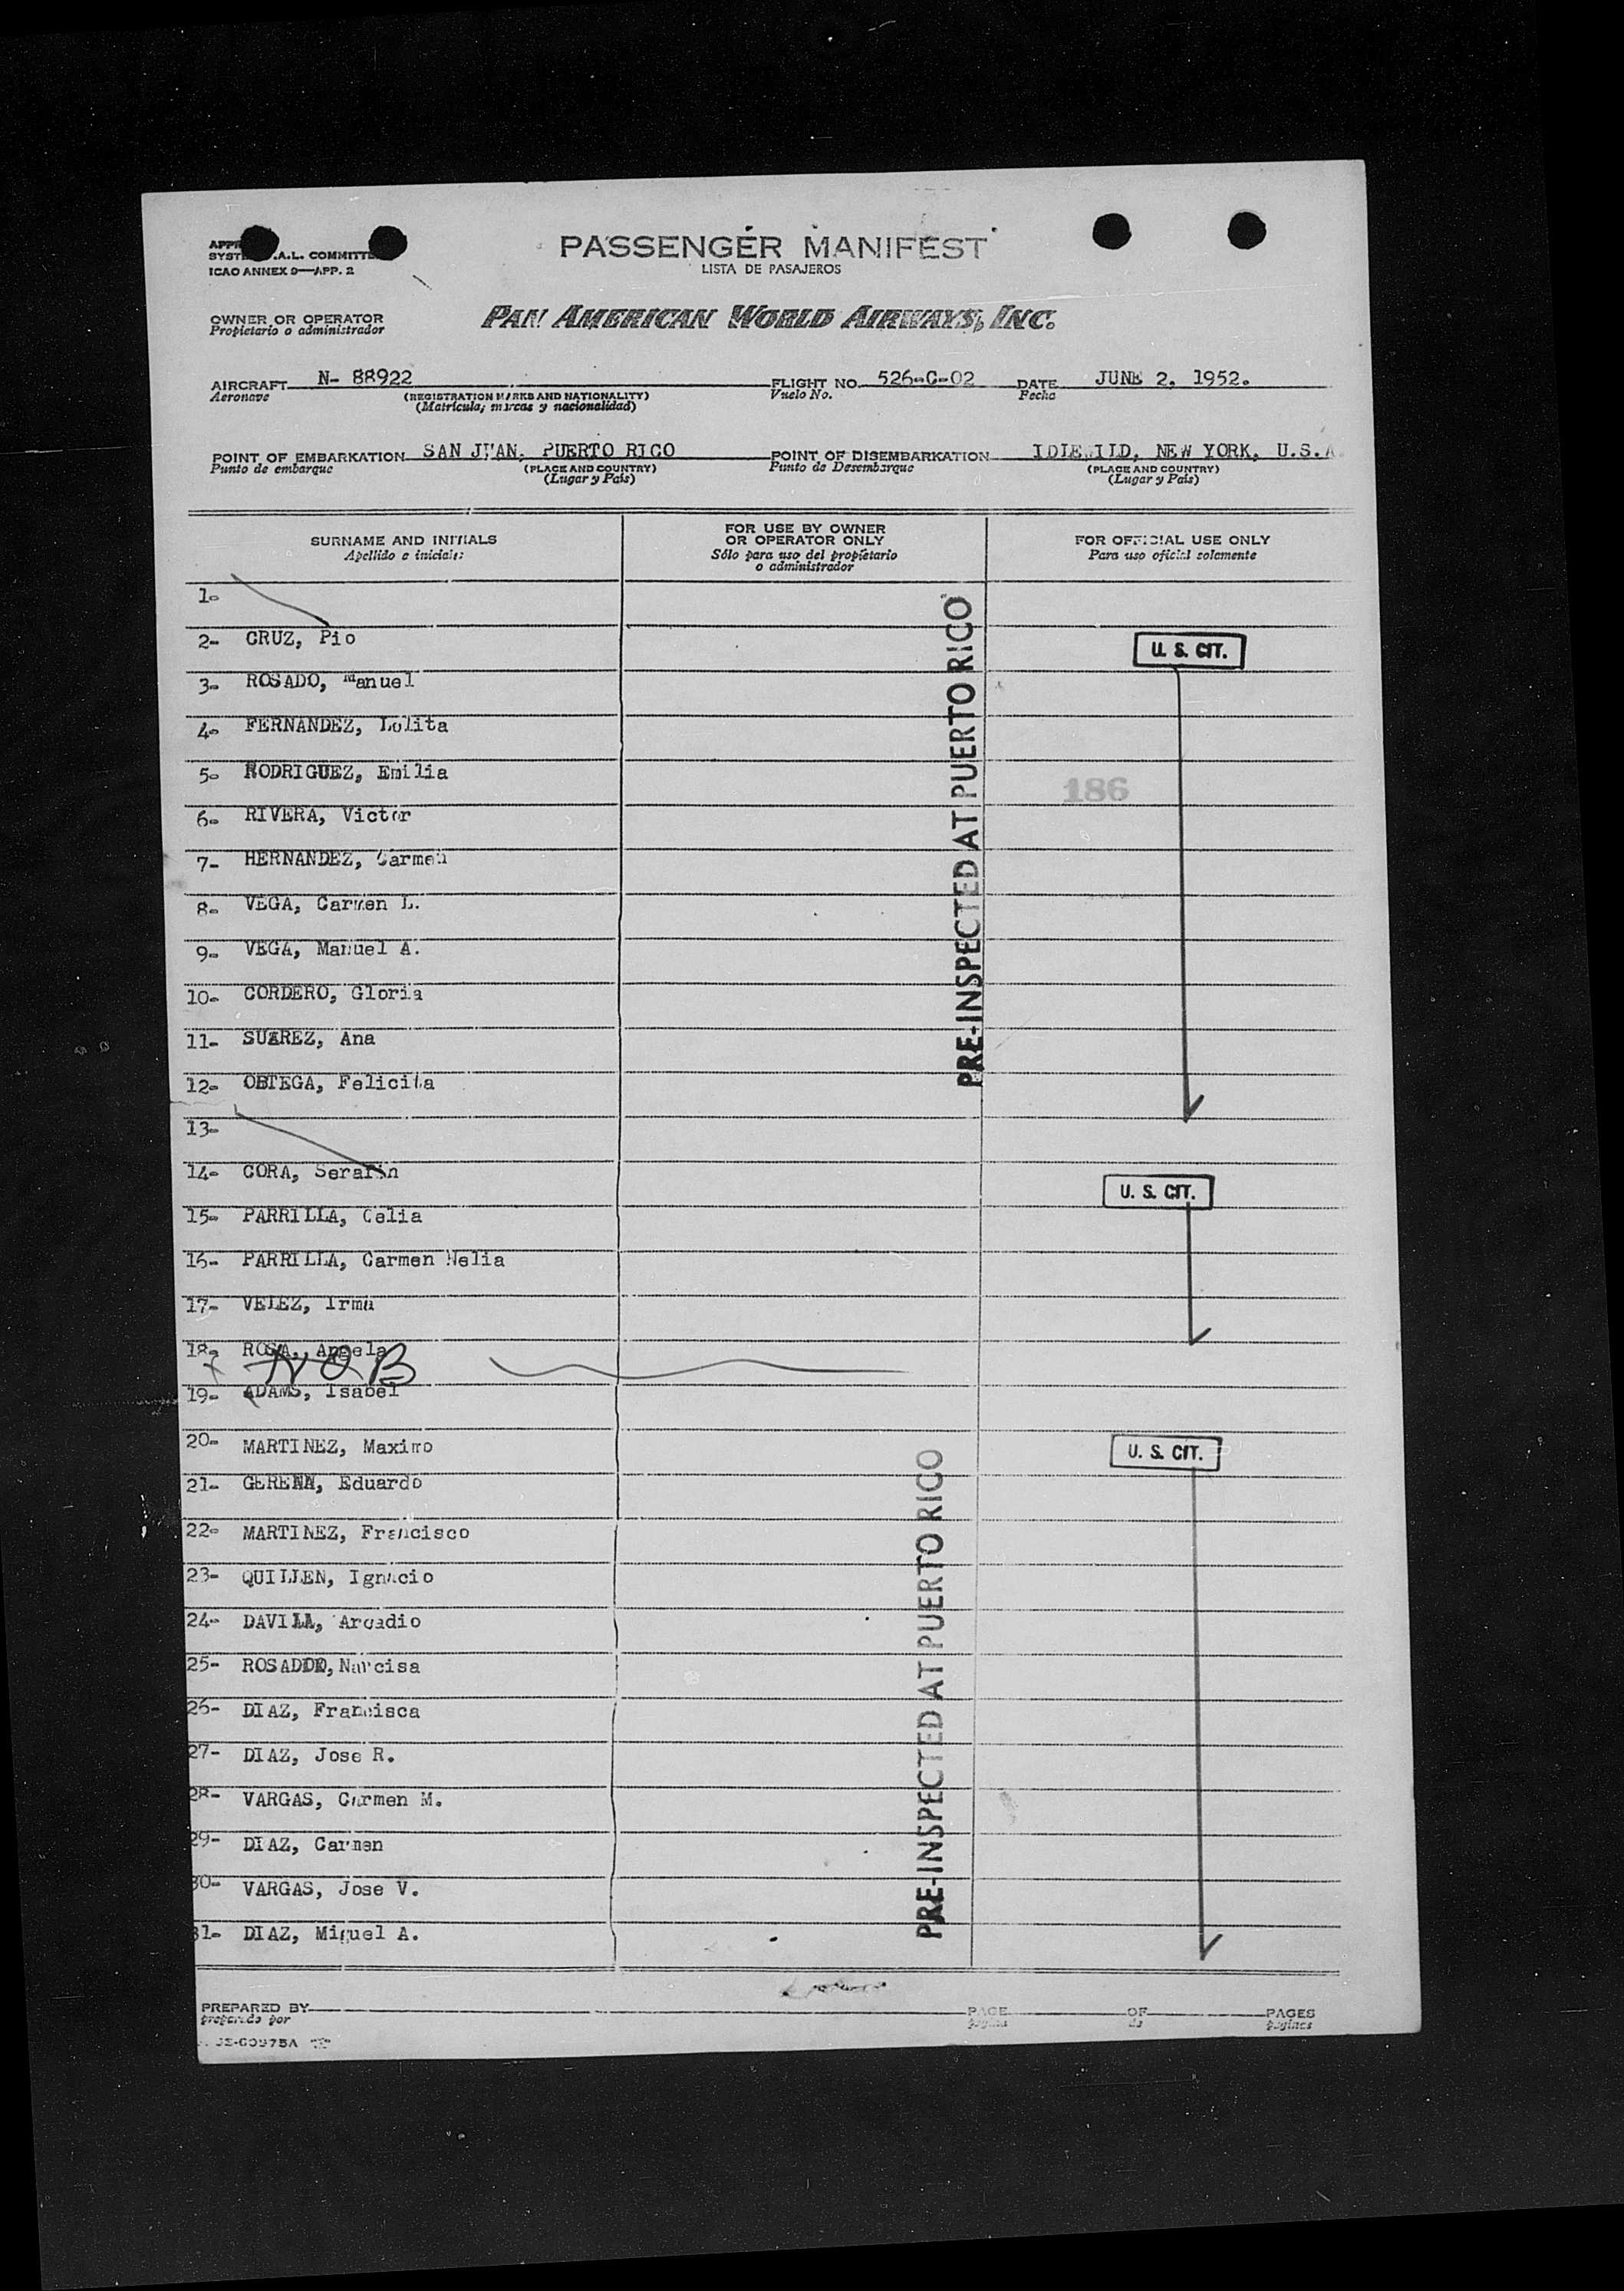 PASSENGER MANIFEST
LISTA DE PASAJEROS
A.L. COMMITTE
ICAO ANNEX 9—APP. 2
OWNER OR OPERATOR
Propietario o administrador
PAN AMERICAN WORLD AIRWAYS, INC.
AIRCRAFT N- 88922 FLIGHT NO. 526-C-02 DATE JUNE 2, 1952.
Aeronave (REGISTRATION MARKS AND NATIONALITY) Vuelo No. Fecha
(Matrícula, marcas y nacionalidad)
POINT OF EMBARKATION SAN JUAN, PUERTO RICO POINT OF DISEMBARKATION IDLEWILD, NEW YORK, U.S.A
Punto de embarque (PLACE AND COUNTRY) Punto de Desembarque (PLACE AND COUNTRY)
(Lugar y País) (Lugar y País)
SURNAME AND INITIALS FOR USE BY OWNER OR OPERATOR ONLY FOR OFFICIAL USE ONLY
Apellido e iniciales Sólo para uso del propietario o administrador Para uso oficial solamente
1-
2- CRUZ, Pio U. S. CIT.
3- ROSADO, Manuel
4- FERNANDEZ, Lolita
5- RODRIGUEZ, Emilia
186
6- RIVERA, Victor
7- HERNANDEZ, Carmen
8- VEGA, Carmen L.
9- VEGA, Manuel A.
10- CORDERO, Gloria
11- SUAREZ, Ana
12- ORTEGA, Felicita
PRE-INSPECTED AT PUERTO RICO
13-
14- CORA, Serafin U. S. CIT.
15- PARRILLA, Celia
16- PARRILLA, Carmen Nelia
17- VELEZ, Irma
18- ROSA, Angela
NOB
19- ADAMS, Isabel
20- MARTINEZ, Maximo U. S. CIT.
21- GERENA, Eduardo
22- MARTINEZ, Francisco
23- QUILLEN, Ignacio
24- DAVILA, Arcadio
25- ROSADO, Narcisa
26- DIAZ, Francisca
27- DIAZ, Jose R.
28- VARGAS, Carmen M.
29- DIAZ, Carmen
30- VARGAS, Jose V.
31- DIAZ, Miguel A.
PRE-INSPECTED AT PUERTO RICO
PREPARED BY PAGE OF PAGES
preparado por página de páginas